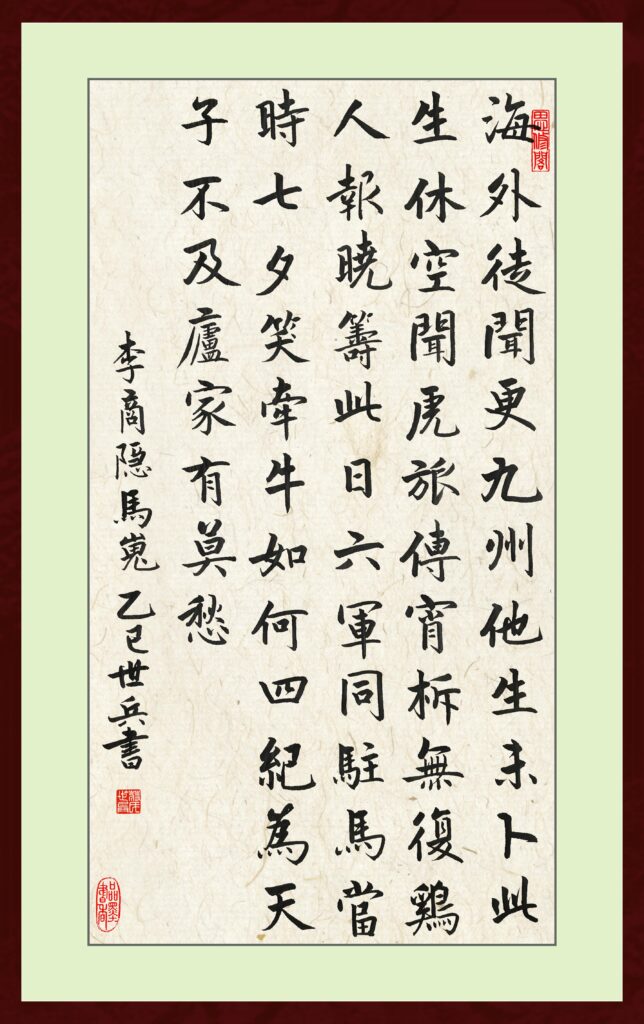 思修閣
海外徒聞更九州他生未卜此
生休空聞虎旅傳宵柝無復鷄
人報曉籌此日六軍同駐馬當
時七夕笑牽牛如何四紀為天
子不及廬家有莫愁
李商隐馬嵬 乙巳世兵書